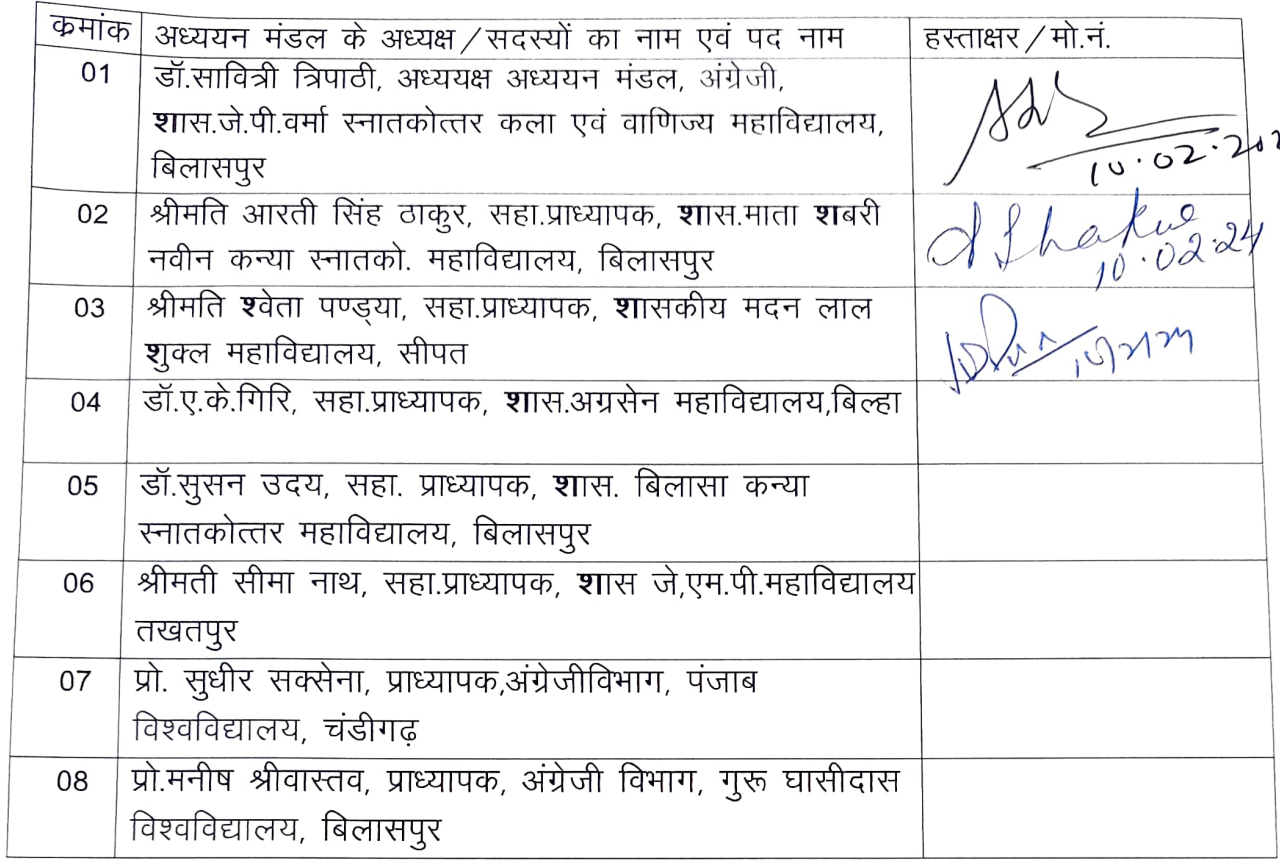 क्रमांक अध्ययन मंडल के अध्यक्ष/सदस्यों का नाम एवं पद नाम हस्ताक्षर/मो.नं.
01 डॉ.सावित्री त्रिपाठी, अध्ययक्ष अध्ययन मंडल, अंग्रेजी,
शास.जे.पी.वर्मा स्नातकोत्तर कला एवं वाणिज्य महाविद्यालय,
बिलासपुर 10.02.202
02 श्रीमति आरती सिंह ठाकुर, सहा.प्राध्यापक, शास.माता शबरी
नवीन कन्या स्नातको. महाविद्यालय, बिलासपुर 10.02.24
03 श्रीमति श्वेता पण्ड्या, सहा.प्राध्यापक, शासकीय मदन लाल
शुक्ल महाविद्यालय, सीपत
04 डॉ.ए.के.गिरि, सहा.प्राध्यापक, शास.अग्रसेन महाविद्यालय,बिल्हा
05 डॉ.सुसन उदय, सहा. प्राध्यापक, शास. बिलासा कन्या
स्नातकोत्तर महाविद्यालय, बिलासपुर
06 श्रीमती सीमा नाथ, सहा.प्राध्यापक, शास जे,एम.पी.महाविद्यालय
तखतपुर
07 प्रो. सुधीर सक्सेना, प्राध्यापक,अंग्रेजीविभाग, पंजाब
विश्वविद्यालय, चंडीगढ़
08 प्रो.मनीष श्रीवास्तव, प्राध्यापक, अंग्रेजी विभाग, गुरू घासीदास
विश्वविद्यालय, बिलासपुर